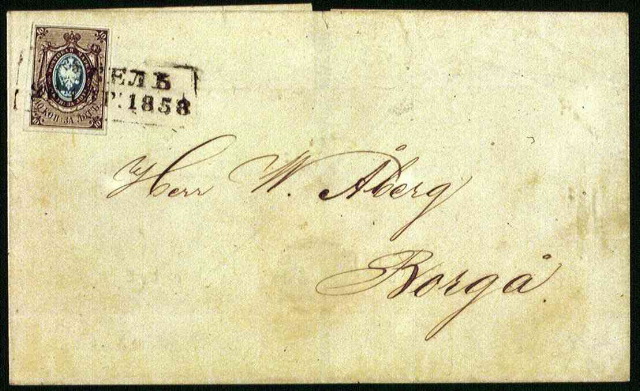 ЕЛЬ
Г. 1858
10 КОП. ЗА ЛОТЪ
Herr W. Åberg
Borgå